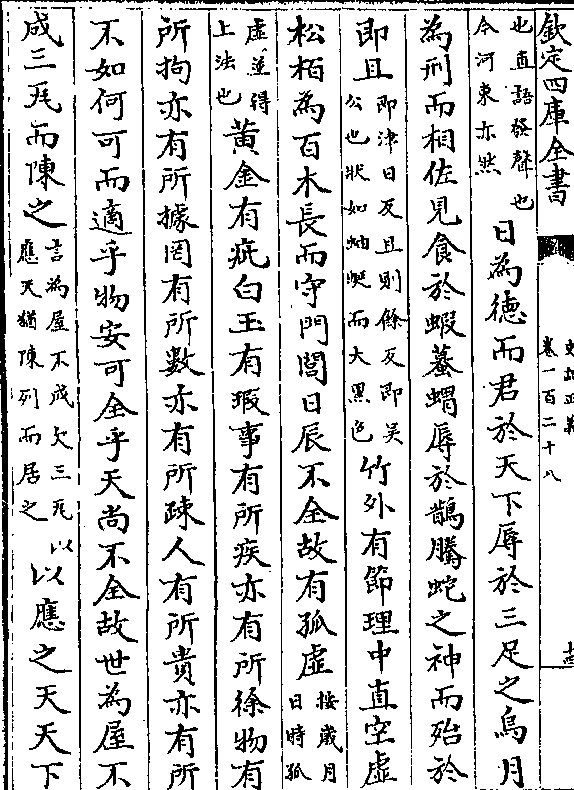 欽定四庫全書
史記正義
卷一百二十八
也直語發聲也
今河東亦然
日為德而君於天下辱於三足之烏月
為刑而相佐見食於蝦蟇蝟辱於鵲騰蛇之神而殆於
即且
即津日反且則餘反即吴
公也狀如蚰蜒而大黑色
竹外有節理中直空虛
松柏為百木長而守門閭日辰不全故有孤虛
按歲月
日時孤
虛並得
上法也
黃金有疵白玉有瑕事有所疾亦有所徐物有
所拘亦有所據罔有所數亦有所疎人有所貴亦有所
不如何可而適乎物安可全乎天尚不全故世為屋不
成三瓦而陳之
言為屋不成欠三瓦以
應天猶陳列而居之
以應之天天下